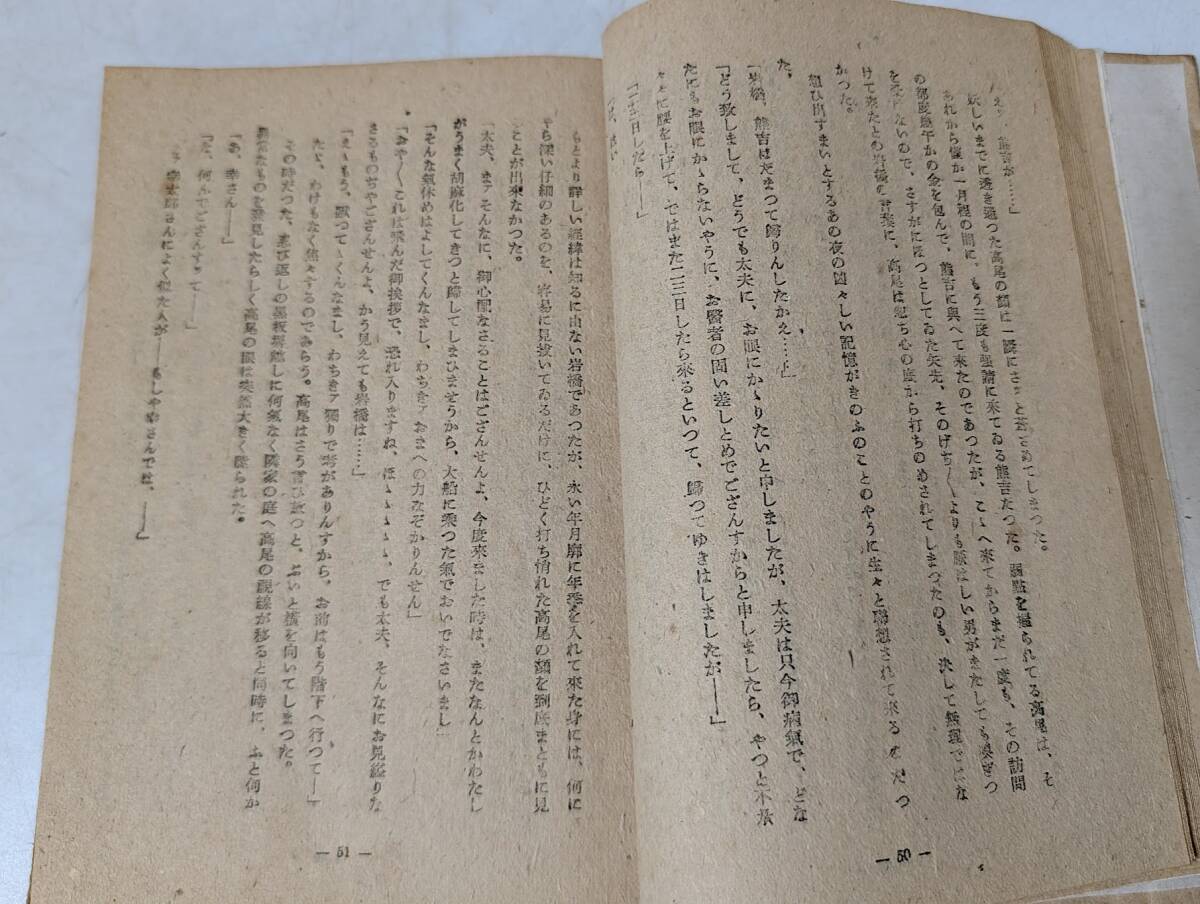 えッ、熊吉が……」
妖しいまでに透き通つた高尾の顔は一瞬にさッと蒼ざめてしまつた。
あれから僅か一月程の間に、もう三度も強請に来てゐる熊吉だつた。弱點を握られてる高尾は、そ
の都度幾干かの金を包んで、熊吉に與へて来たのであつたが、こゝへ来てからまだ一度も、その訪問
を受けないので、さすがにほつとしてゐた矢先、そのげぢ〱よりも厭はしい男がまたしても嗅ぎつ
けて来たとの岩橋の言葉に、高尾は忽ち心の底から打ちのめされてしまつたのも、決して無理ではな
かつた。
想ひ出すまいとするあの夜の忌々しい記憶がきのふのことのやうに生々と聯想されて来るのだつ
た。
「岩橋、熊吉はだまつて歸りんしたかえ……」
「どう致しまして、どうでも太夫に、お眼にかゝりたいと申しましたが、太夫は只今御病氣で、どな
たにもお眼にかゝらないやうに、お醫者の固い差しとめでござんすからと申しましたら、やつと不承
々々に腰を上げて、ではまた二三日したら來るといつて、歸つてゆきはしましたが――」
「二三日したら――」
「はい」
もとより詳しい經緯は知るに由ない岩橋であつたが、永い年月廓に年季を入れて來た身には、何に
やら深い仔細のあるのを、容易に見拔いてゐるだけに、ひどく打ち悄れた高尾の顔を到底まともに見
ことが出來なかつた。
「太夫、まァそんなに、御心配なさることはござんせんよ、今度来ました時は、またなんとかわたし
がうまく胡麻化してきつと歸してしまひませうから、大船に乘つた氣でおいでなさいまし」
「そんな氣休めはよしてくんなまし、わちきァおまへの力なぞかりんせん」
「おや〱これは飛んだ御挨拶で、恐れ入りますね、ほゝゝゝゝ、でも太夫、そんなにお見縊りな
さるものぢやござんせんよ、かう見えても岩橋は……」
「えゝもう、默つてゝくんなまし、わちきァ獨りで考がありんすから、お前はもう階下へ行つて―」
わけもなく焦々するのであらう。高尾はさう言ひ放つと、ぷいと横を向いてしまつた。
その時だつた、忍び返しの黒板塀越しに何氣なく隣家の庭へ高尾の視線が移ると同時に、ふと何か
異樣なものを發見したらしく高尾の眼は突然大きく瞠られた。
「あ、幸さん――」
「え、何んでござんすつて――」
「幸太郎さんによく似た人が――もしや幸さんでは、――」
― 50 ―
― 51 ―